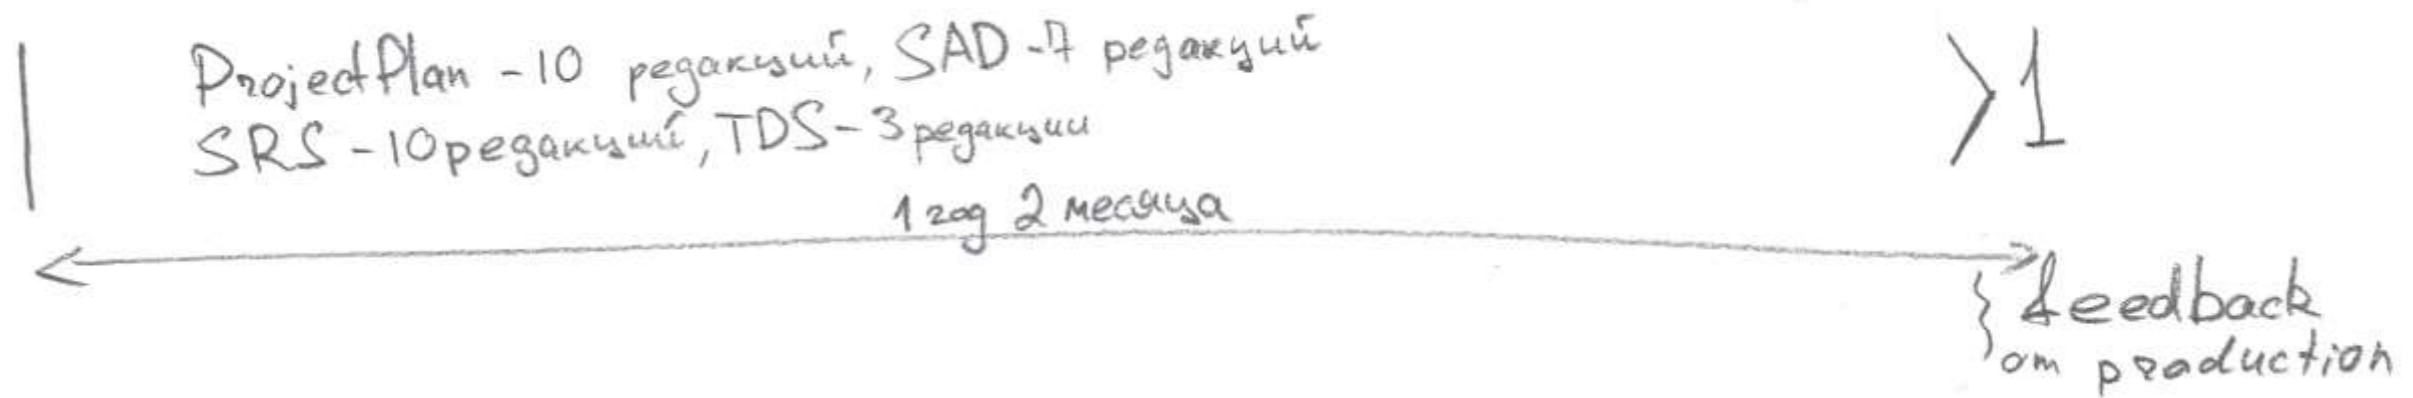 ProjectPlan - 10 редакций, SAD - 7 редакций
SRS - 10 редакций, TDS - 3 редакции
>1
1 год 2 месяца
feedback
от production